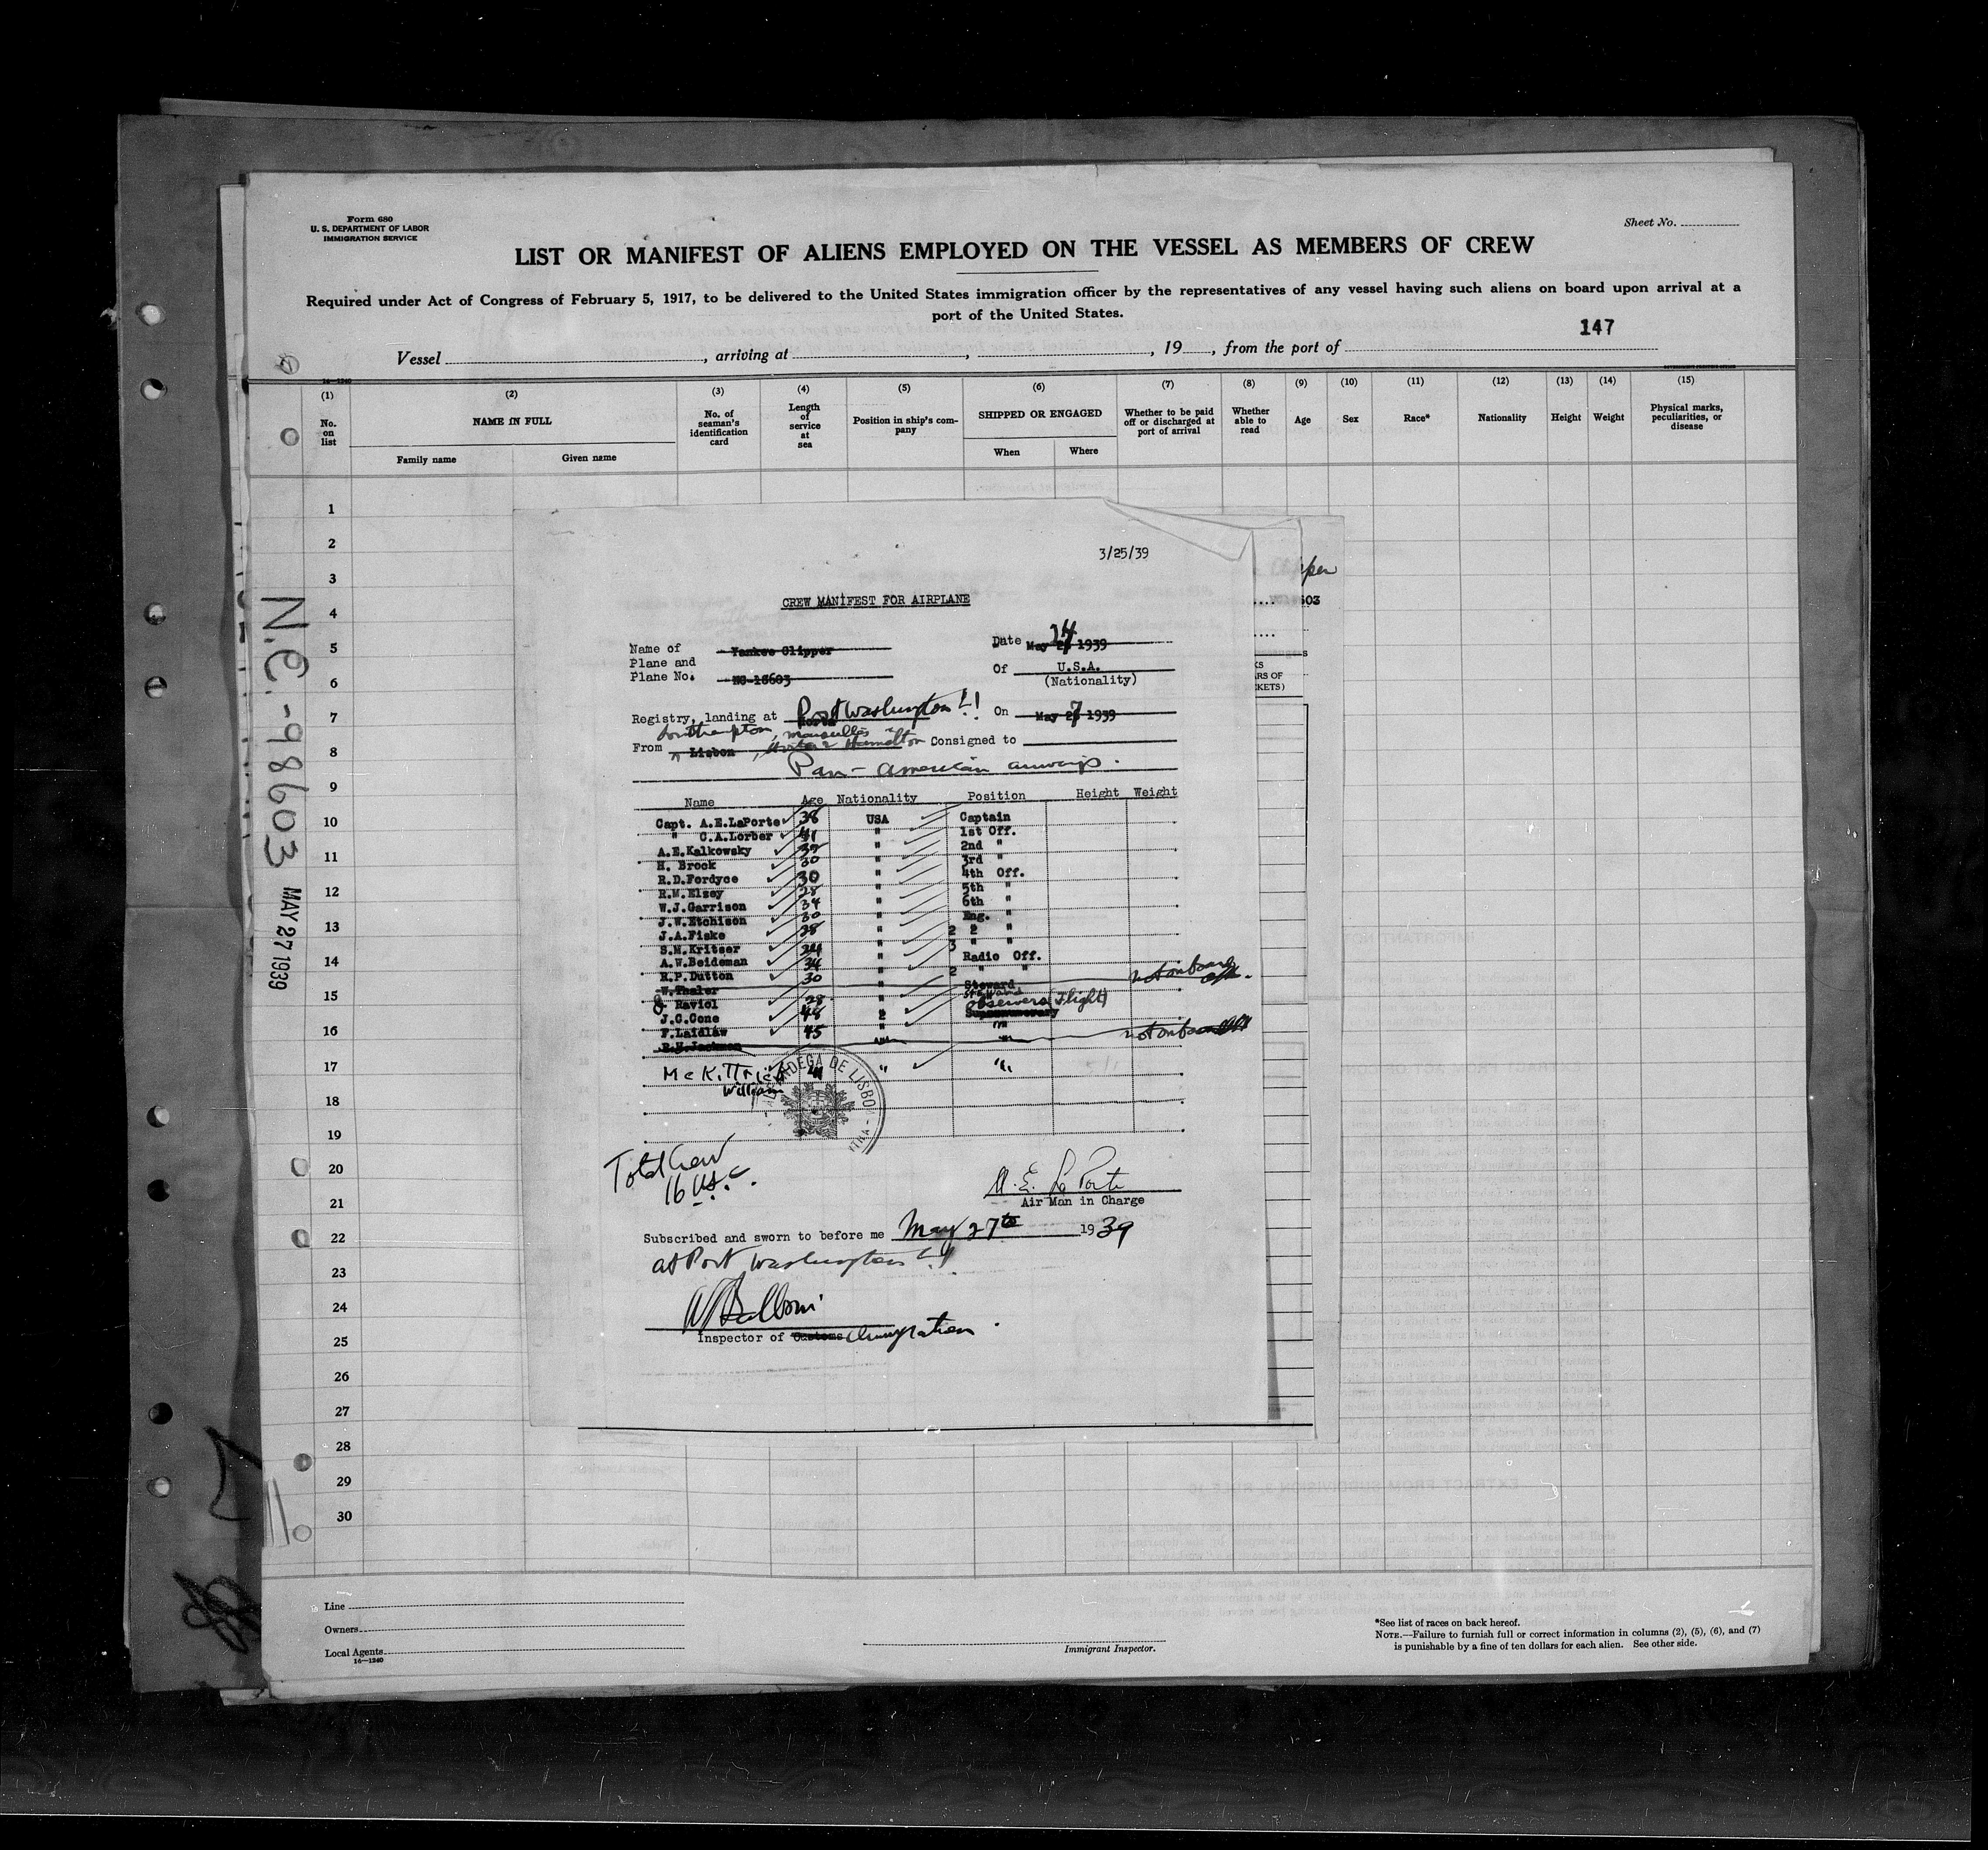 Form 680
U. S. DEPARTMENT OF LABOR
IMMIGRATION SERVICE
Sheet No.
LIST OR MANIFEST OF ALIENS EMPLOYED ON THE VESSEL AS MEMBERS OF CREW
Required under Act of Congress of February 5, 1917, to be delivered to the United States immigration officer by the representatives of any vessel having such aliens on board upon arrival at a
port of the United States.
147
Vessel , arriving at , , 19 , from the port of
16—1240
(1) (2) (3) (4) (5) (6) (7) (8) (9) (10) (11) (12) (13) (14) (15)
No. on list
NAME IN FULL
Family name
Given name
No. of seaman's identification card
Length of service at sea
Position in ship's company
SHIPPED OR ENGAGED
When
Where
Whether to be paid off or discharged at port of arrival
Whether able to read
Age
Sex
Race*
Nationality
Height
Weight
Physical marks, peculiarities, or disease
1
2
3
4
5
6
7
8
9
10
11
12
13
14
15
16
17
18
19
20
21
22
23
24
25
26
27
28
29
30
N.C.-98603
MAY 27 1939
3/25/39
CREW MANIFEST FOR AIRPLANE
Name of Plane and Plane No.
Yankee Clipper
NC-18603
Date May 24 1939
Of U.S.A.
(Nationality)
Registry, landing at Port Washington L.I. On May 27 1939
Southampton, Marseilles
From Lisbon, Horta & Hamilton Consigned to
Pan-American Airways.
Name Age Nationality Position Height Weight
Capt. A.E.LaPorte 38 USA Captain
" C.A.Lorber 41 " 1st Off.
A.E.Kalkowsky 39 " 2nd "
H. Brock 30 " 3rd "
R.D.Fordyce 30 " 4th Off.
R.M.Elzey 28 " 5th "
W.J.Garrison 34 " 6th "
J.W.Etchison 30 " Eng. "
J.A.Fiske 28 " 2 " "
S.M.Kritser 24 " 3 " "
A.W.Beideman 34 " Radio Off.
R.P.Dutton 30 " 2 " "
W.Thaler Steward not on board
Raviol 28 " Steward
J.C.Cone 48 " Observers (Flight)
Supernumerary
F.Laidlaw 45 " "
not on board
McKittrick 41 " "
William
ALFANDEGA DE LISBOA
Total Crew
16 U.S.C.
A. E. La Porte
Air Man in Charge
Subscribed and sworn to before me May 27th 1939
at Port Washington L.I.
Inspector of Customs Immigration
Line
Owners
Local Agents
16—1240
Immigrant Inspector.
*See list of races on back hereof.
NOTE.—Failure to furnish full or correct information in columns (2), (5), (6), and (7)
is punishable by a fine of ten dollars for each alien. See other side.